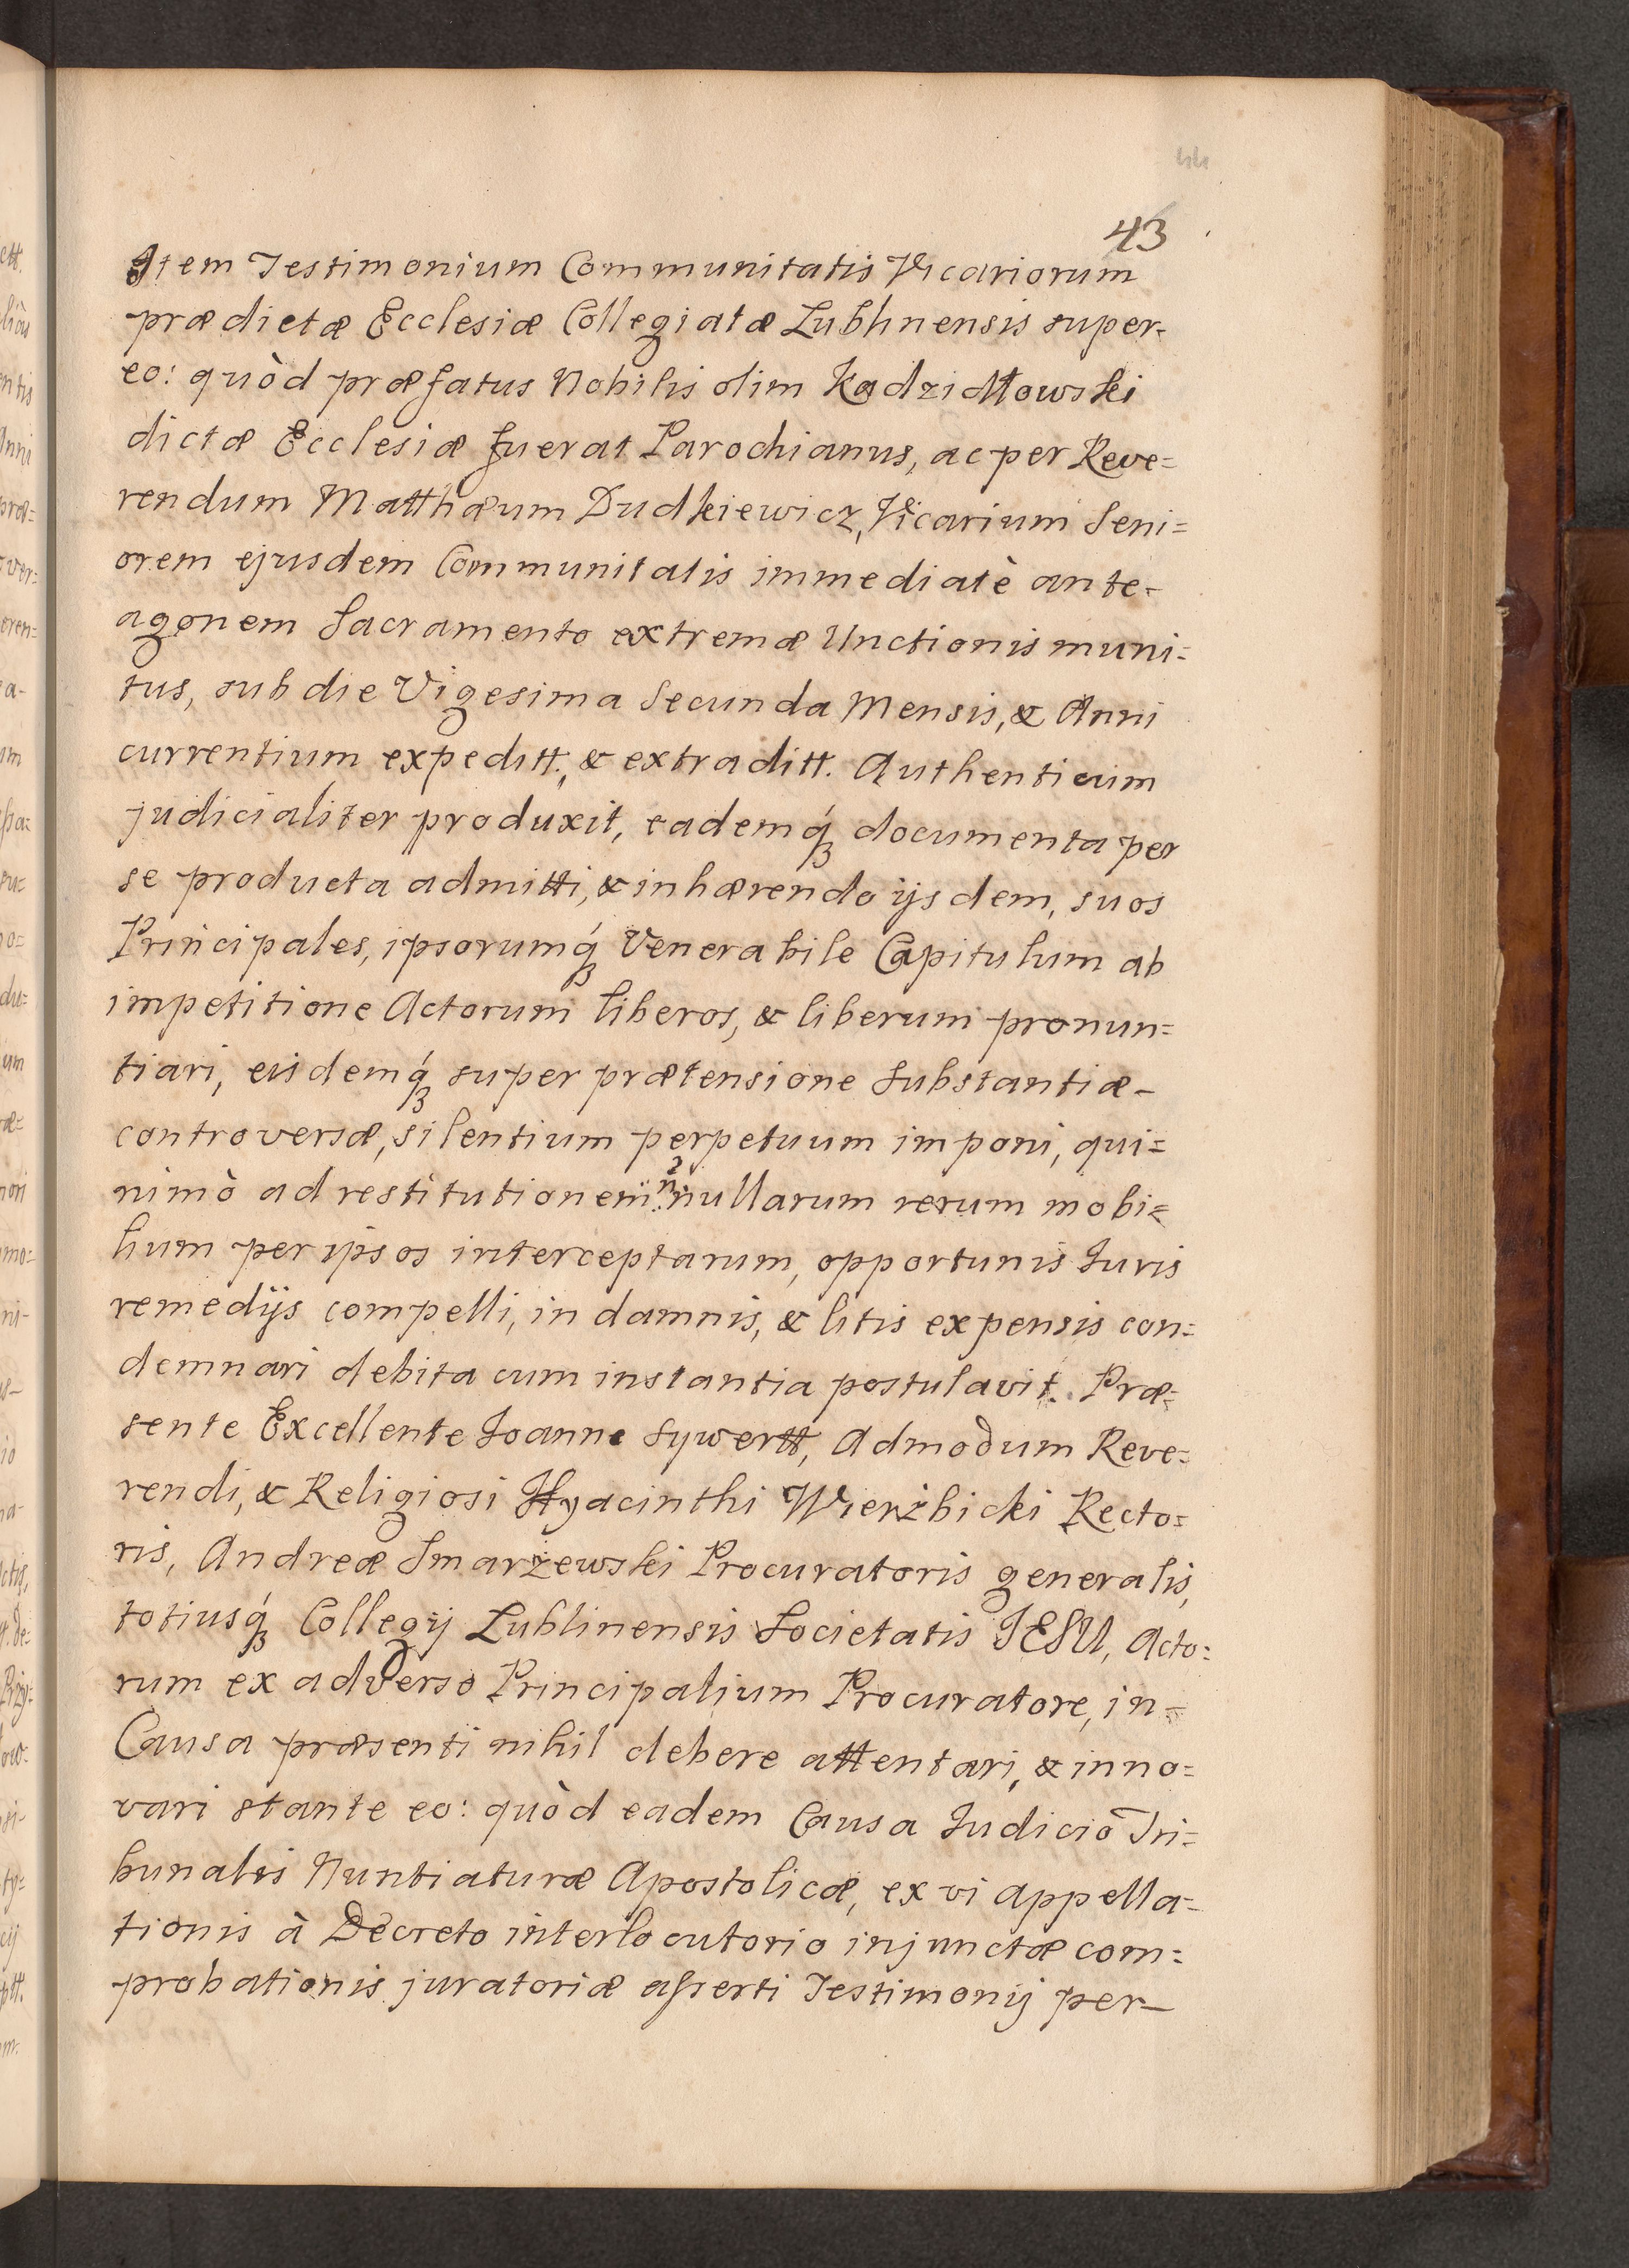 44
43
Item Testimonium Communitatis Vicariorum
prædictæ Ecclesiæ Collegiatæ Lublinensis super-
eo: quòd præfatus Nobilis olim Kadzidłowski
dictæ Ecclesiæ fuerat Parochianus, ac per Reve=
rendum Matthæum Dudkiewicz, Vicarium Seni=
orem ejusdem Communitatis immediatè ante-
agonem Sacramento extremæ Unctionis muni=
tus, sub die Vigesima Secunda Mensis, & Anni
currentium expeditt., & extraditt. Authenticum
judicialiter produxit, eademq́ꝫ documenta per
se producta admitti, & inhærendo ijsdem, suos
Principales, ipsorumq́ꝫ Venerabile Capitulum ab
impetitione Actorum liberos, & liberum pronun=
tiari, eisdemq́ꝫ super prætensione Substantiæ-
controversæ, silentium perpetuum imponi, qui=
nimò ad restitutionem nullarum rerum mobi=
lium per ipsos interceptarum, opportunis Iuris
remedijs compelli, in damnis, & litis expensis con=
demnari debita cum instantia postulavit. Præ=
sente Excellente Ioanne Sywertt, Admodum Reve=
rendi, & Religiosi Hyacinthi Wierżbicki Recto=
ris, Andreæ Smarżewski Procuratoris generalis,
totiusq́ꝫ Collegij Lublinensis Societatis IESU, Acto=
rum ex adverso Principalium Procuratore, in=
Causa præsenti nihil debere attentari, & inno=
vari stante eo: quòd eadem Causa Iudiciō Tri=
bunalis Nuntiaturæ Apostolicæ, ex vi appella=
tionis à Decreto interlocutorio injunctæ com=
probationis juratoriæ asserti Testimonij per-